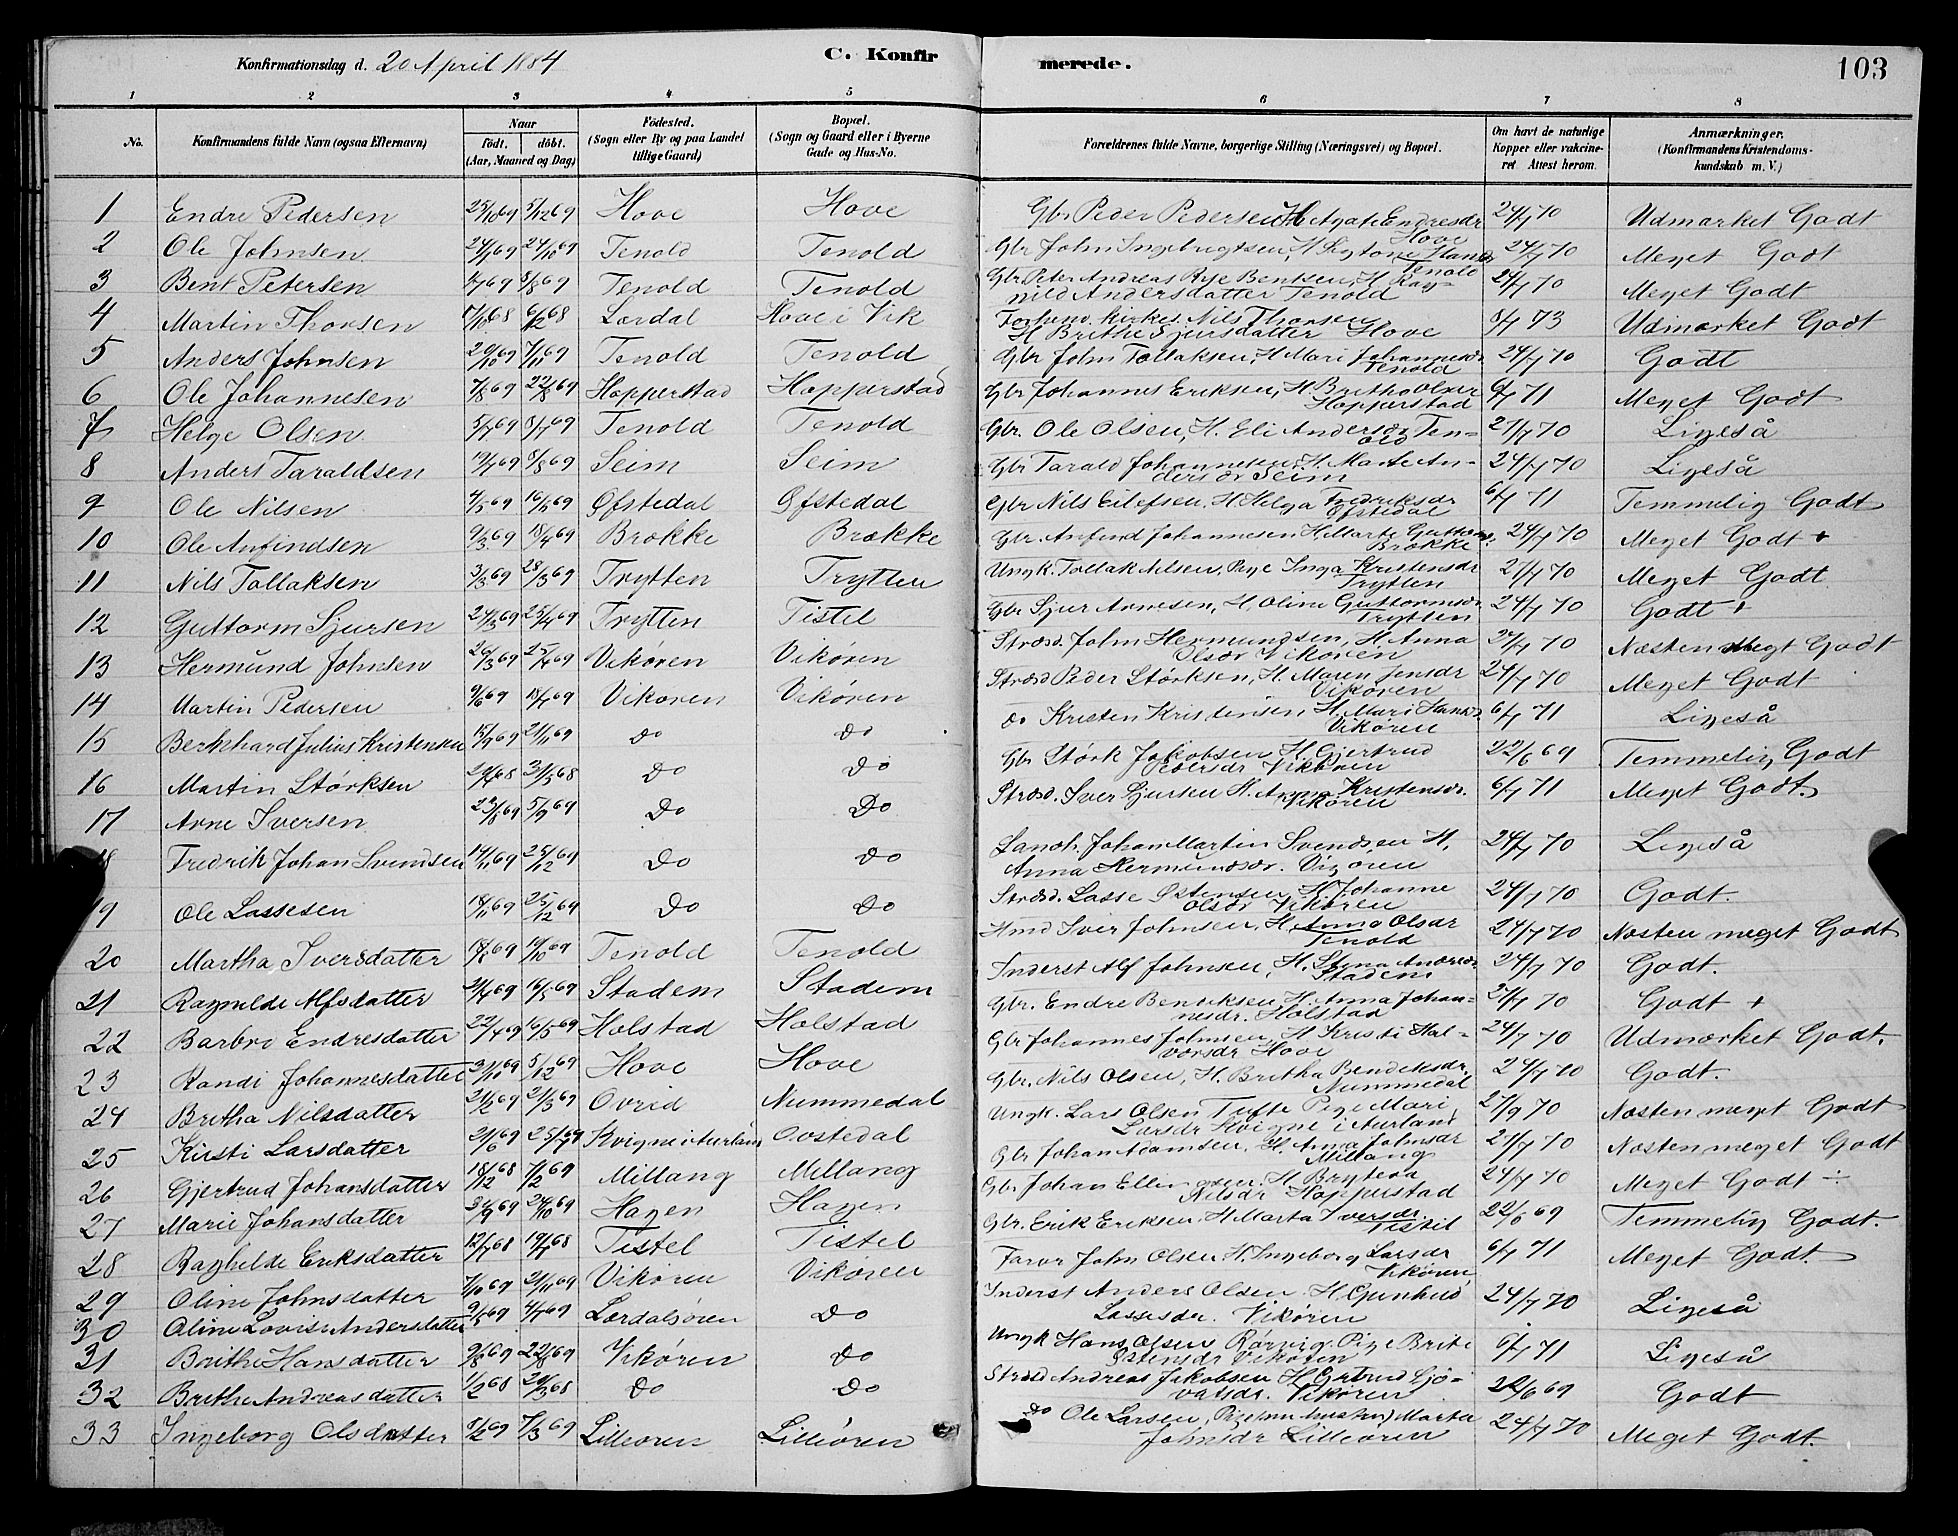 Konfirmationsdag d. 20 April 1884
C. Konfirmerede.
103
1 2 3 4 5 6 7 8
No.
Konfirmandens fulde Navn (ogsaa Efternavn)
Naar
født. døbt.
(Aar, Maaned og Dag)
Fødested.
(Sogn eller By og paa Landet tillige Gaard)
Bopæl.
(Sogn og Gaard eller i Byerne Gade og Hus-No.
Forældrenes fulde Navne, borgerlige Stilling (Næringsvei) og Bopæl.
Om havt de naturlige Kopper eller vakcineret Attest herom.
Anmærkninger.
(Konfirmandens Kristendomskundskab m. V.)
1 Endre Pedersen 25/10 69 5/12 69 Hove Hove Gbr Peder Pedersen H Agate Endresdr Hove 24/7 70 Udmærket Godt
2 Ole Johnsen 24/10 69 Tenold Tenold Gbr John Ingebrigtsen, H. Tenold 24/7 70 Meget Godt
3 Bent Petersen 8/8 69 Tenold Tenold Gbr Peter Andreas Rye Bentsen, H. Ragnild Andersdatter Tenold 24/7 70 Meget Godt
4 Martin Thorsen 6/12 68 Lærdal Hove i Vik Nils Thorsen H Brithe Sjursdatter Hove 73 Udmærket Godt
5 Anders Johnsen 29/10 69 7/11 69 Tenold Tenold Gbr John Tollaksen, H Mari Johannesdr Tenold 24/7 70 Godt
6 Ole Johannesen 7/8 69 22/8 69 Hopperstad Hopperstad Gbr Johannes Eriksen, H. Britha Olsdr Hopperstad 6/7 71 Meget Godt
7 Helge Olsen 5/7 69 Tenold Tenold Gbr. Ole Olsen, H. Eli Andersdr Tenold 27/7 70 Ligeså
8 Anders Taraldsen 19/7 69 8/8 69 Seim Seim Gbr Tarald Johannesen H. Marte Andersdr Seim 24/7 70 Ligeså
9 Ole Nilsen 4/5 69 16/5 69 Øfstedal Øfstedal Gbr Nils Eilefsen, H. Helga Fredriksdr Øfstedal 6/7 71 Temmelig Godt
10 Ole Anfindsen 9/3 69 18/4 69 Brække Brække Gbr. Anfind Johannesen H Marte Brække 24/7 70 Meget Godt +
11 Nils Tollaksen 3/3 69 28/3 69 Trytten Trytten Ungk. Tollak Nilsen, Pige Inga Kristensdr Trytten 27/7 70 Meget Godt
12 Guttorm Sjursen 24/3 69 25/4 69 Trytten Tistel Gbr Sjur Arnesen, H. Oline Guttormsdr. Trytten 24/7 70 Godt +
13 Hermund Johnsen 26/3 69 25/4 69 Vikøren Vikøren Strds. John Hermundsen, H. Anna Olsdr Vikøren 24/7 70 Næsten Megt Godt
14 Martin Pedersen 18/7 69 Vikøren Vikøren Strds Peder Størksen, H. Maren Jensdr Vikøren 24/7 70 Meget Godt
15 Bernhard Julius Kristensen 15/9 69 21/11 69 Do Do Do Kristen Kristensen H. Mari Hansdr Vikøren 6/7 71 Ligeså
16 Martin Størksen 29/4 68 31/5 68 Do Do Gbr Størk Jakobsen H. Gjertrud Pedersdr Vikøren 22/6 69 Temmelig Godt
17 Arne Iversen 5/9 69 Do Do Strds. Iver Sjursen H. Anna Kristensdr. Vikøren 6/7 71 Meget Godt.
18 Fredrik Johan Svendsen 14/11 69 25/12 69 Do Do Landh. Johan Martin Svendsen H. Anna Hermundsdr. Vikøren 24/7 70 Ligeså
19 Ole Lassesen 18/11 69 25/12 69 Do Do Strds. Lasse Østensen H. Johanne Olsdr Vikøren 24/7 70 Godt.
20 Martha Iversdatter 18/8 69 10/10 69 Tenold Tenold Hmd Iver Johnsen, H. Anna Olsdr Tenold 24/7 70 Næsten meget Godt
21 Ragnilde Alfsdatter 21/4 69 16/5 69 Stadem Stadem Inderst Alf Johnsen, H. Stina Andrsdr. Stadem 24/7 70 Godt.
22 Barbro Endresdatter 22/4 69 16/5 69 Holstad Holstad Gbr. Endre Bendiksen H. Anna Johannesdr. Holstad 24/7 70 Godt +
23 Randi Johannesdatter 31/10 69 5/12 69 Hove Hove Gbr Johannes Johnsen, H Kristi Halvorsdr Hove 24/7 70 Udmærket Godt.
24 Britha Nilsdatter 21/2 69 21/3 69 Ovrid Nummedal Gbr. Nils Olsen, H. Britha Bendiksdr. Nummedal 24/7 70 Godt.
25 Kirsti Larsdatter 21/6 69 25/7 69 Kvigne i Aurland Ovstedal Ungk. Lars Olsen Tufte Pige Mari Larsdr Kvigne i Aurland 27/9 70 Næsten meget Godt
26 Gjertrud Johansdatter 18/12 68 7/2 69 Millang Millang Gbr Johan Adamsen, H. Anna Johnsdr Millang 27/7 70 Næsten meget Godt
27 Marie Johansdatter 24/10 69 Hagen Hagen Gbr Johan Ellingsen. H. Bryteva Nilsdr Hopperstad 24/7 70 Meget Godt ÷
28 Raghelde Eriksdatter 12/7 68 19/7 68 Tistel Tistel Gbr. Erik Eriksen. H Marta Iversdr. Tistel 22/6 69 Temmelig Godt.
29 Oline Johnsdatter 7/10 69 21/11 69 Vikøren Vikøren Farver John Olsen H. Ingeborg Larsdr Vikøren 6/7 71 Meget Godt.
30 Oline Lovise Andersdatter 9/5 69 4/7 69 Lærdalsøren Do Inderst Anders Olsen H. Gunhild Lassesdr. Vikøren 24/7 70 Ligeså
31 Brithe Hansdatter 9/8 69 22/8 69 Vikøren Do Ungk Hans Olsen Rørvig Pige Brite Østensdr Vikøren 6/7 71 Ligeså
32 Brithe Andreasdatter 1/2 68 29/3 68 Do Do Strds Andreas Jakobsen H Gjertrud Vikøren 22/6 69 Godt
33 Ingeborg Olsdatter 8/2 69 7/3 69 Lilleøren Lilleøren Do Ole Larsen, Marta Johnsdr Lilleøren 24/7 70 Meget Godt.